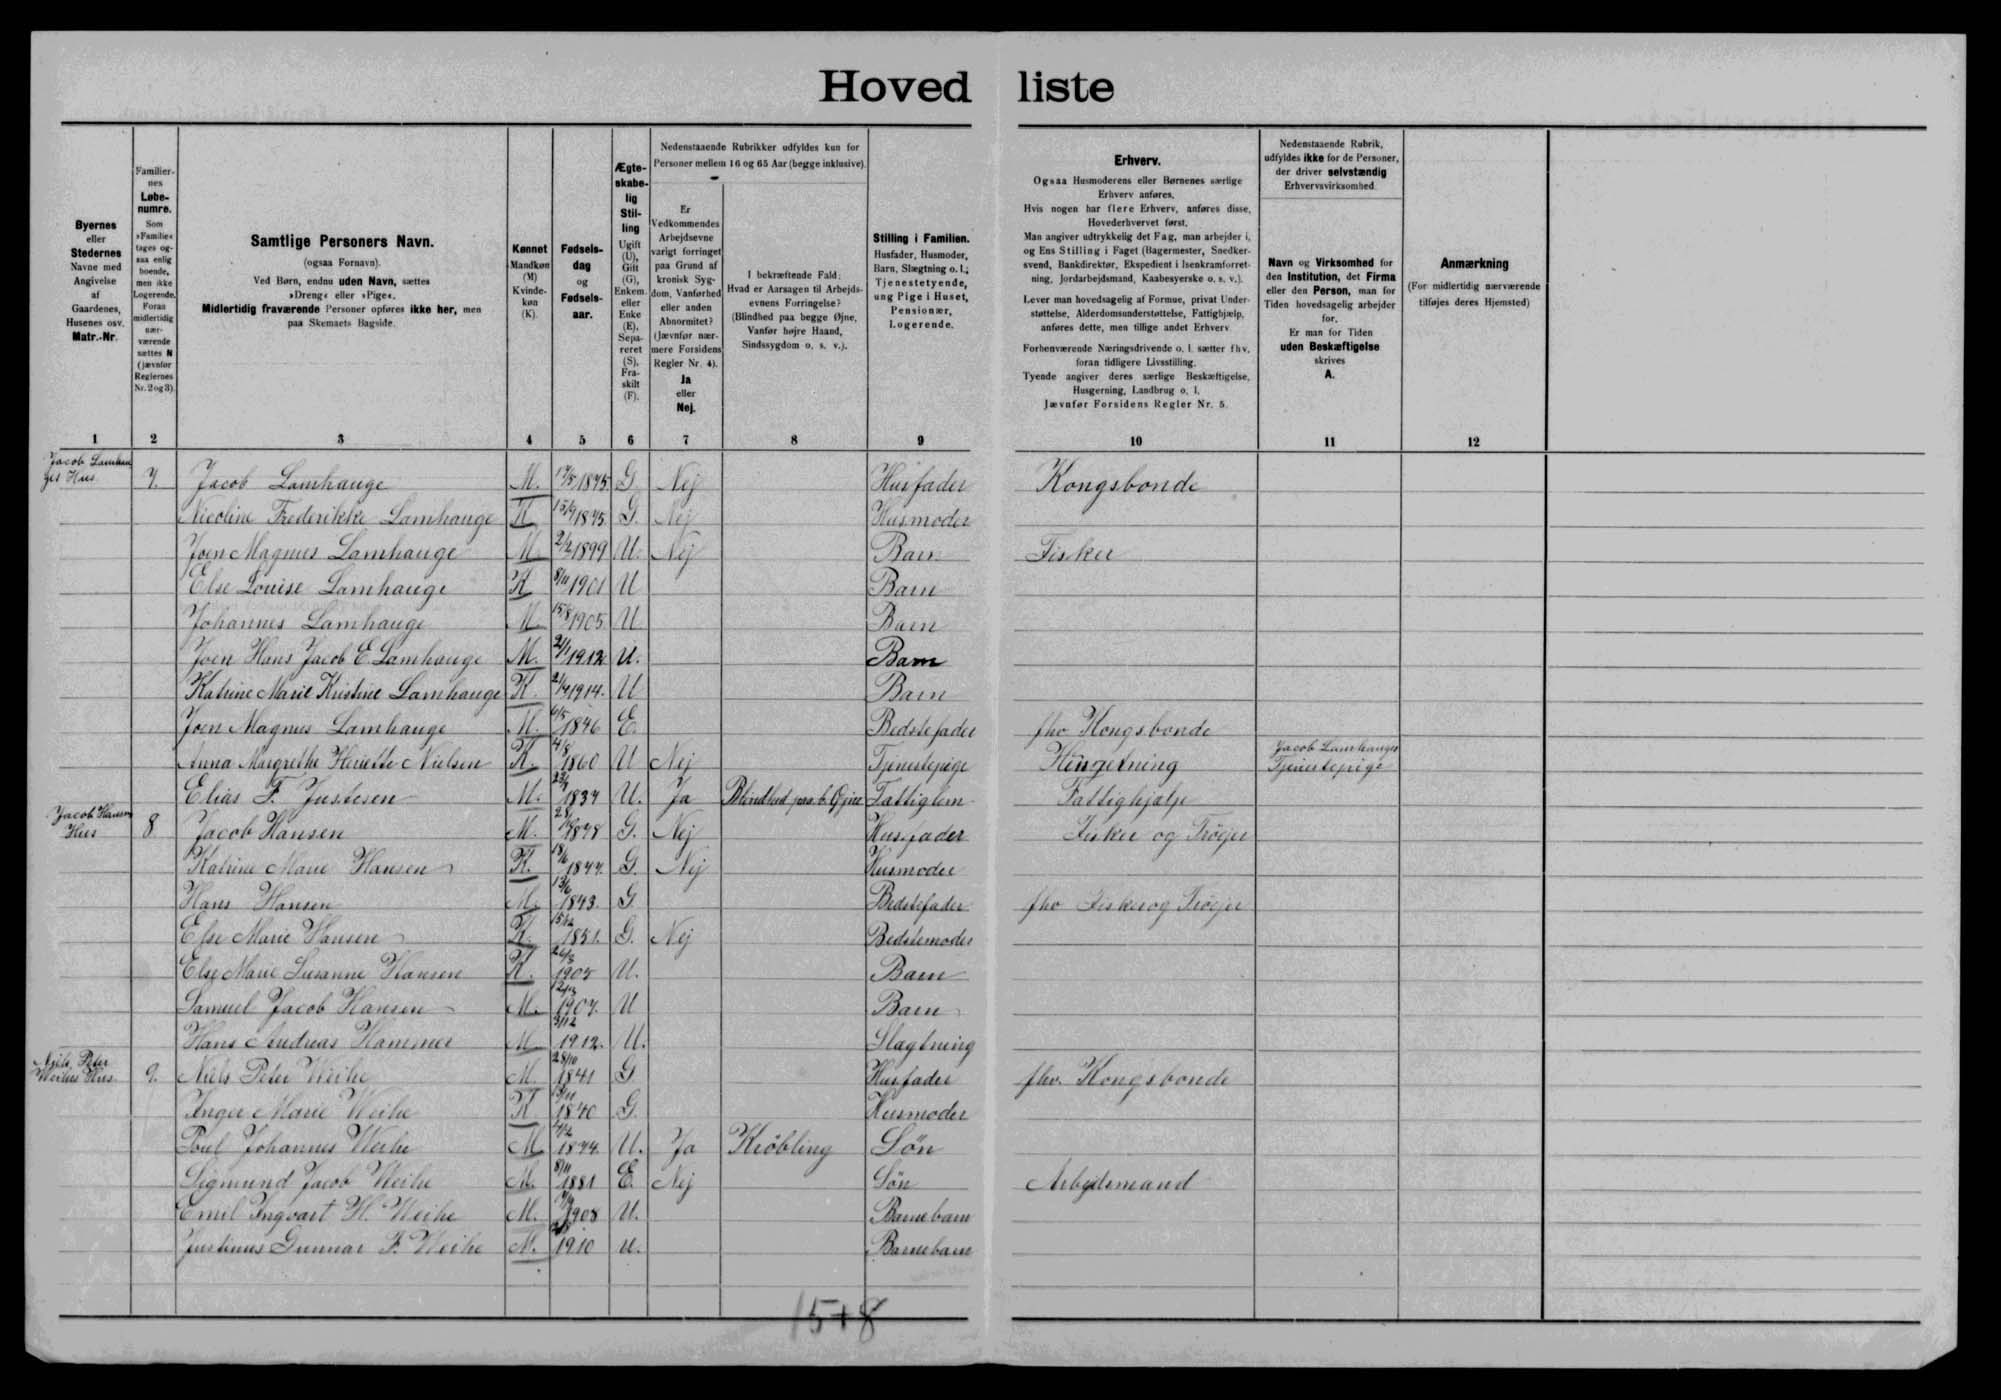 Hoved liste
Byernes
eller
Stedernes
Navne med
Angivelse
af
Gaardenes,
Husenes osv.
Matr.-Nr.
1
Familier-
nes
Løbe-
numre.
Som
»Familie«
tages og-
saa enlig
boende,
men ikke
Logerende.
Foran
midlertidig
nær-
værende
sættes N
(jævnfør
Reglernes
Nr. 2 og 3).
2
Samtlige Personers Navn.
(ogsaa Fornavn).
Ved Børn, endnu uden Navn, sættes
»Dreng« eller »Pige«.
Midlertidig fraværende Personer opføres ikke her, men
paa Skemaets Bagside.
3
Kønnet
Mandkøn
(M)
Kvinde-
køn
(K).
4
Fødsels-
dag
og
Fødsels-
aar.
5
Ægte-
skabe-
lig
Stil-
ling
Ugift
(U),
Gift
(G),
Enkem.
eller
Enke
(E),
Sepa-
reret
(S),
Fra-
skilt
(F).
6
Nedenstaaende Rubrikker udfyldes kun for
Personer mellem 16 og 65 Aar (begge inklusive).
Er
Vedkommendes
Arbejdsevne
varigt forringet
paa Grund af
kronisk Syg-
dom, Vanførhed
eller anden
Abnormitet?
(Jævnfør nær-
mere Forsidens
Regler Nr. 4).
Ja
eller
Nej.
7
I bekræftende Fald:
Hvad er Aarsagen til Arbejds-
evnens Forringelse?
(Blindhed paa begge Øjne,
Vanfør højre Haand,
Sindssygdom o. s. v.).
8
Stilling i Familien.
Husfader, Husmoder,
Barn, Slægtning o. l.;
Tjenestetyende,
ung Pige i Huset,
Pensionær,
Logerende.
9
Erhverv.
Ogsaa Husmoderens eller Børnenes særlige
Erhverv anføres.
Hvis nogen har flere Erhverv, anføres disse,
Hovederhvervet først.
Man angiver udtrykkelig det Fag, man arbejder i,
og Ens Stilling i Faget (Bagermester, Snedker-
svend, Bankdirektør, Ekspedient i Isenkramforret-
ning, Jordarbejdsmand, Kaabesyerske o. s. v.).
Lever man hovedsagelig af Formue, privat Under-
støttelse, Alderdomsunderstøttelse, Fattighjælp,
anføres dette, men tillige andet Erhverv.
Forhenværende Næringsdrivende o. l. sætter fhv.
foran tidligere Livsstilling.
Tyende angiver deres særlige Beskæftigelse,
Husgerning, Landbrug o. l.
Jævnfør Forsidens Regler Nr. 5.
10
Nedenstaaende Rubrik,
udfyldes ikke for de Personer,
der driver selvstændig
Erhvervsvirksomhed.
Navn og Virksomhed for
den Institution, det Firma
eller den Person, man for
Tiden hovedsagelig arbejder
for.
Er man for Tiden
uden Beskæftigelse
skrives
A.
11
Anmærkning
(For midlertidig nærværende
tilføjes deres Hjemsted)
12
Jacob Lamhau
ges Hus. 7. Jacob Lamhauge M. 1875. G Nej Husfader Kongsbonde
Nicoline Frederikke Lamhauge K 1875. G. Nej Husmoder
Joen Magnus Lamhauge M 2/2 1899 U. Nej Barn Fisker
Else Louise Lamhauge K 8/11 1901 U Barn
Johannes Lamhauge M 1905. U Barn
Joen Hans Jacob E. Lamhauge M. 1912 U. Barn
Katrine Marie Kristine Lamhauge K. 1914. U Barn
Joen Magnus Lamhauge M. 6/5 1846 E. Bedstefader fhv Kongsbonde
Anna Margrethe Heriette Nielsen K. 4/8 1860 U Nej Tjenestepige Husgerning Jacob Lamhauges Tjenestepige
Elias F. Justesen M. U. Ja Blindhed paa b. Øjne Fattiglem Fattighjælp
Jacob Hansens
Hus 8 Jacob Hansen M. 1878 G. Nej Husfader Fisker og Trøejer
Katrine Marie Hansen K. 18/6 1877. G. Nej Husmoder
Hans Hansen M. 13/6 1843. G Bedstefader fhv Fisker og Trøejer
Else Marie Hansen K. 15/12 1851. G. Nej Bedstemoder
Else Marie Susanne Hansen K. 26/3 1905 U. Barn
Samuel Jacob Hansen M. 1907. U Barn
Hans Andreas Hammer M 3/12 1912. U. Slagtning
Niels Peter
Weihes Hus. 9. Niels Peter Weihe M. 28/10 1841 G Husfader fhv. Kongsbonde
Inger Marie Weihe K 1840 G. Husmoder
Poul Johannes Weihe M 1874. U. Ja Krøbling Søn
Sigmund Jacob Weihe M. 8/11 1881 E. Nej Søn Arbejdsmand
Emil Ingvart H. Weihe M. 1908 U. Barnebarn
Justinus Gunnar F. Weihe M. 1910 U. Barnebarn
15+8